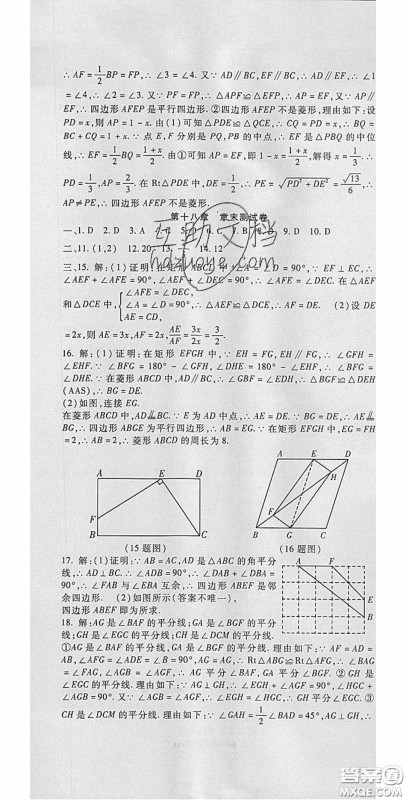 ∴ AF=1/2BP=FP,∴ ∠3=∠4. 又∵ AD∥BC,EF∥BC,∴ AD∥EF,∴ ∠1
=∠4,∴ ∠2=∠3. 又∵ PF=FP,∴ △APF≌△EFP,∴ AP=EF. 又∵ AP
∥EF,∴ 四边形AFEP是平行四边形. ②四边形AFEP不是菱形,理由如下:设
PD=x,则AP=1-x. 由(1)可知△PDE≌△CQE,∴ CQ=PD=x,∴ BQ=
BC+CQ=1+x. ∵ 点E,F分别是PQ,PB的中点,∴ EF是△PBQ的中位
线,∴ EF=1/2BQ=(1+x)/2. 由①可知AP=EF,即1-x=(1+x)/2,解得x=1/3. ∴
PD=1/3,AP=2/3. 在Rt△PDE中,DE=1/2,∴ PE=√(PD²+DE²)=√13/6,∴
AP≠PE,∴ 四边形AFEP不是菱形.
第十八章 章末测试卷
一、1. D 2. D 3. A 7. B 8. D 9. D 10. D
二、11. (1,2) 12. 20 14. 12
三、15. 解:(1)证明:在矩形ABCD中,∠A=∠D=90°,∵ EF⊥EC,∴
∠AEF+∠DEC=90°,∠AFE+∠AEF=90°,∴ ∠AFE=∠DEC,在△AEF
和△DCE中,{∠AFE=∠DEC, ∠A=∠D=90°, AE=CD, ∴ △AEF≌△DCE(AAS). (2)设DE
=2x,则AE=3x,AF=2x,AE/AF=3x/2x=3/2.
16. 解:(1)证明:在矩形EFGH中,∵ EH=FG,EH∥FG,∴ ∠GFH=
∠EHF. ∵ ∠BFG=180°-∠GFH,∠DHE=180°-∠EHF,∴ ∠BFG=
∠DHE. 在菱形ABCD中,AD∥BC,∴ ∠GBF=∠EDH,∴ △BGF≌△DEH
(AAS),∴ BG=DE.
(2)如图,连接EG.
在菱形ABCD中,AD⫽BC. ∵ E为AD中点,∴ AE=DE. ∵ BG=DE,∴ AE=
BG,∴ 四边形ABGE为平行四边形,∴ AB=EG. ∵ 在矩形EFGH中,EG=FH
=2,∴ AB=2,∴ 菱形ABCD的周长为8.
A E D
F
B C
(15题图)
A E D
H
F
B G C
(16题图)
17. 解:(1)证明:∵ AB=AC,AD是△ABC的角平分
线,∴ AD⊥BC. ∴ ∠ADB=90°,∴ ∠DAB+∠DBA=
90°,∴ ∠FAB与∠EBA互余,∴ 四边形ABEF是邻
余四边形. (2)如图所示(答案不唯一),
四边形ABEF即为所求.
A F
E
B
18. 解:AG是∠BAF的平分线;GA是∠BGF的平分
线;GH是∠EGC的平分线;CH是∠DCM的平分线.
①AG是∠BAF的平分线、GA是∠BGF的平分线. 理由如下:∵ AF=AD=
AB,∠AFG=∠ADE=∠B=90°,AG=AG,∴ Rt△ABG≌Rt△AFG(HL).
∴ ∠BAG=∠FAG,∠AGB=∠AGF. ②GH是
∠EGC的平分线. 理由如下:∵ AG⊥GH,∴ ∠EGH+∠AGF=90°,∠HGC+
∠AGB=90°. 又∵ ∠AGB=∠AGF,∴ ∠EGH=∠HGC,∴ GH平分∠EGC. ③
CH是∠DCM的平分线. 理由如下:∵ ∠GAH=1/2∠BAD=45°,AG⊥GH,∴
互助文档
hdzuoye.com
答案圈
MXQE.COM